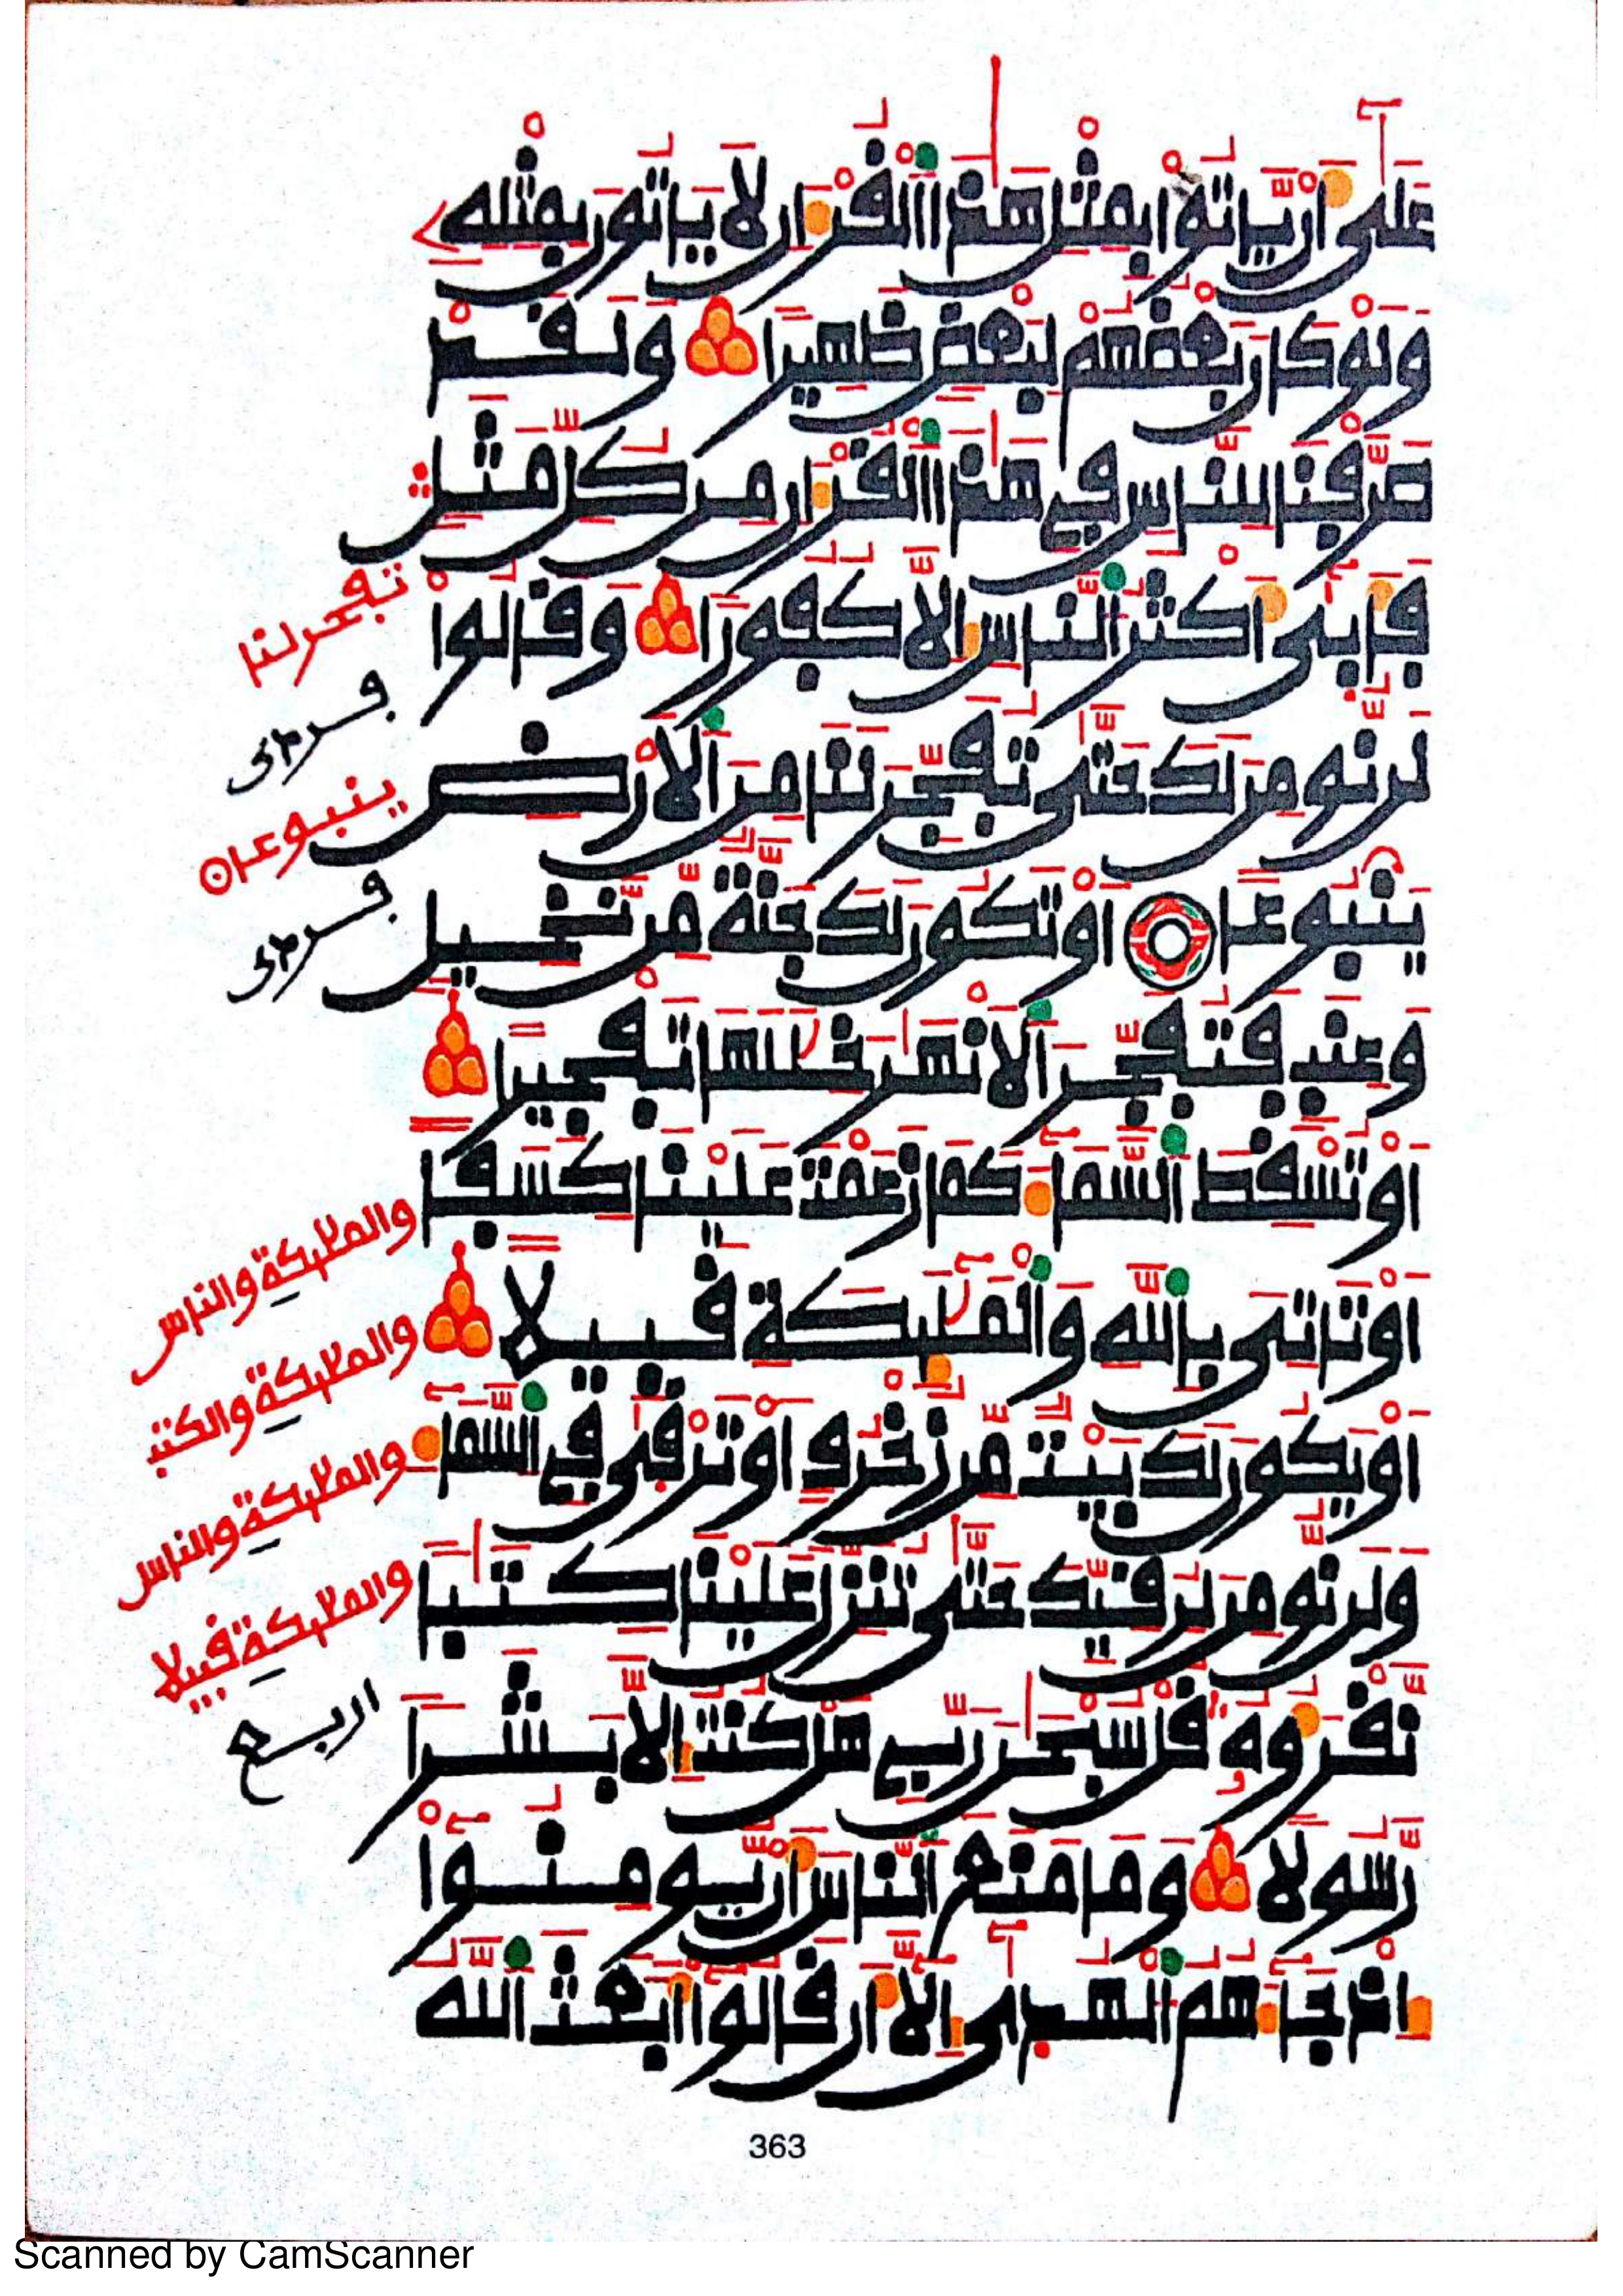 عَلَىٰ أَنْ يَّاتُوا۟ بِمِثْلِ هَٰذَا اَ۬لْقُرْءَانِ لَا يَاتُونَ بِمِثْلِهِ
وَلَوْ كَانَ بَعْضُهُمْ لِبَعْضٍ ظَهِيرًا وَلَقَدْ
صَرَّفْنَا لِلنَّاسِ فِي هَٰذَا اَ۬لْقُرْءَانِ مِن كُلِّ مَثَلٍ
فَأَبَىٰ أَكْثَرُ اُ۬لنَّاسِ إِلَّا كُفُورًا وَقَالُوا۟
لَن نُّومِنَ لَكَ حَتَّىٰ تُفَجِّرَ لَنَا مِنَ اَ۬لَارْضِ
يَنۢبُوعًا اَوْ تَكُونَ لَكَ جَنَّةٌ مِّن نَّخِيلٍ
وَعِنَبٍ فَتُفَجِّرَ اَ۬لَانْهَٰرَ خِلَٰلَهَا تَفْجِيرًا
اَوْ تُسْقِطَ اَ۬لسَّمَآءَ كَمَا زَعَمْتَ عَلَيْنَا كِسَفًا
اَوْ تَاتِيَ بِاللَّهِ وَالْمَلَٰٓئِكَةِ قَبِيلًا
اَوْ يَكُونَ لَكَ بَيْتٌ مِّن زُخْرُفٍ اَوْ تَرْقَىٰ فِي اِ۬لسَّمَآءِ
وَلَن نُّومِنَ لِرُقِيِّكَ حَتَّىٰ تُنَزِّلَ عَلَيْنَا كِتَٰبًا
نَّقْرَؤُهُۥ قُلْ سُبْحَٰنَ رَبِّي هَلْ كُنتُ إِلَّا بَشَرًا
رَّسُولًا وَمَا مَنَعَ اَ۬لنَّاسَ أَنْ يُّومِنُوٓا۟
إِذْ جَآءَهُمُ اُ۬لْهُدَىٰٓ إِلَّآ أَن قَالُوٓا۟ أَبَعَثَ اَ۬للَّهُ
تفجر لنا
ينبوعا
والملئكة والناس
والملئكة والكتب
والملئكة والناس
والملئكة قبيلا
اربع
363
Scanned by CamScanner